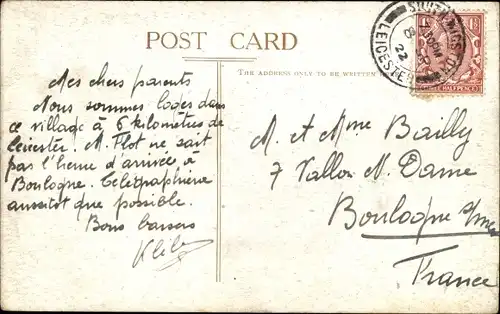 POST CARD
THE ADDRESS ONLY TO BE WRITTEN
LEICESTER
22
THREE HALFPENCE
Mes chers parents
Nous sommes logés dans
ce village à 6 kilomètres de
Leicester. M. Flot ne sait
pas l'heure d'arrivée à
Boulogne. Téléphonerai
aussitôt que possible.
Bons baisers
M. et Mme Bailly
7 Vallon N. Dame
Boulogne s/mer
France